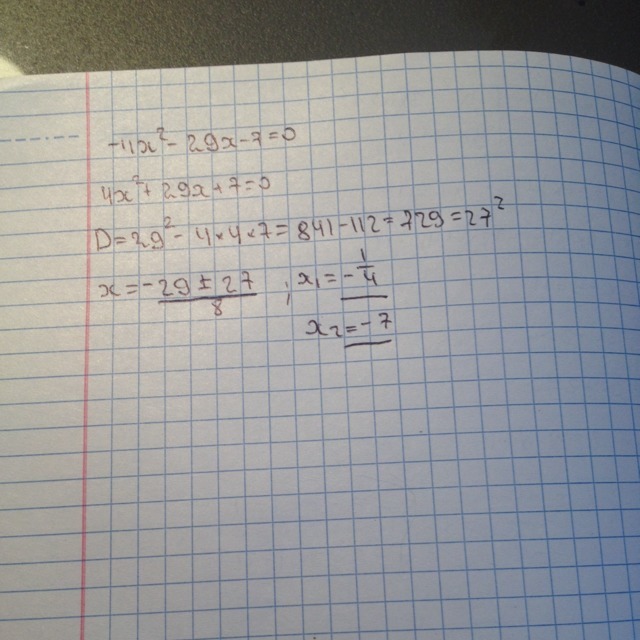 -4x² - 29x - 7 = 0
4x² + 29x + 7 = 0
D = 29² - 4 × 4 × 7 = 841 - 112 = 729 = 27²
x = -29 ± 27 / 8 ; x₁ = -1/4
x₂ = -7